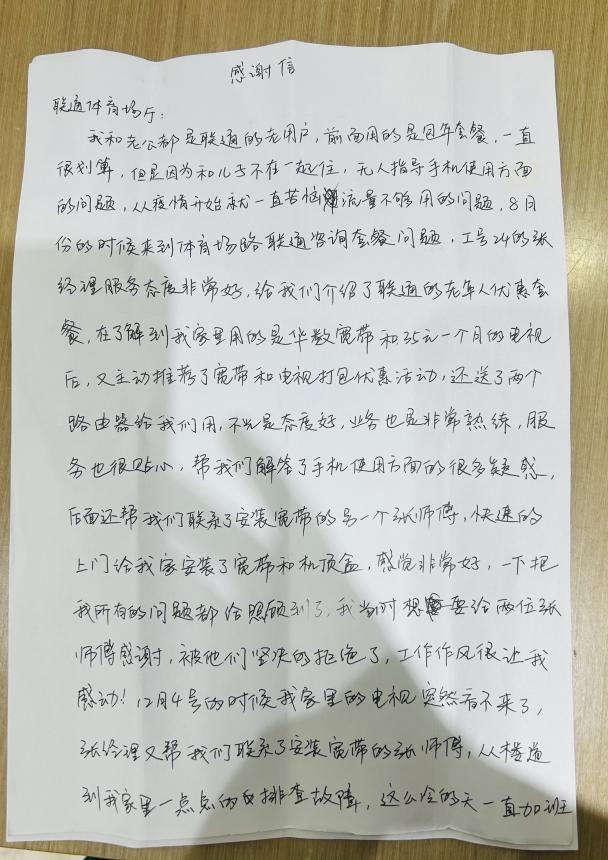 感谢信
联通体育场厅:
我和老公都是联通的老用户,前面用的是包年套餐,一直
很划算,但是因为和儿子不在一起住,无人指导手机使用方面
的问题,从疫情开始就一直苦恼流量不够用的问题,8月
份的时候来到体育场路联通咨询套餐问题,工号24的张
经理服务态度非常好,给我们介绍了联通的老年人优惠套
餐,在了解到我家里用的是华数宽带和35元一个月的电视
后,又主动推荐了宽带和电视打包优惠活动,还送了两个
路由器给我们用,不光是态度好,业务也是非常熟练,服
务也很贴心,帮我们解答了手机使用方面的很多疑惑,
后面还帮我们联系了安装宽带的另一个张师傅,快速的
上门给我家安装了宽带和机顶盒,感觉非常好,一下把
我所有的问题都给照顾到了,我当时想要给两位张
师傅感谢,被他们坚决的拒绝了,工作作风很让我
感动!12月4号的时候我家里的电视突然看不来了,
张经理又帮我们联系了安装宽带的张师傅,从楼道
到我家里一点点的排查故障,这么冷的天一直加班